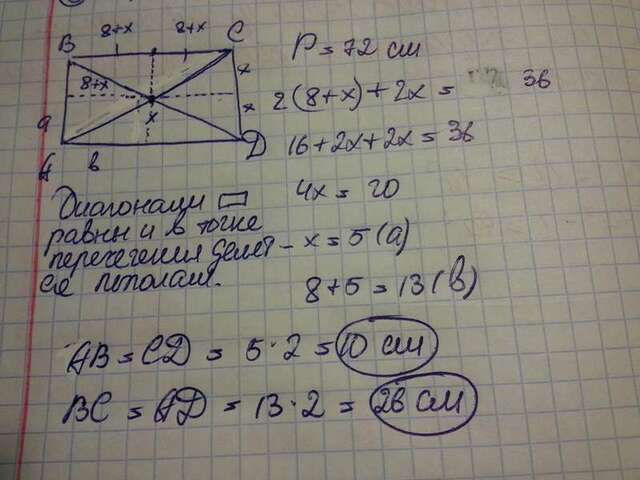 8+x 8+x
B C
8+x x
x
x
a
A в D
P = 72 см
2(8+x)+2x = 36
16+2x+2x = 36
4x = 20
Диагонали ▭
равны и в точке
пересечения делят-
ся пополам.
x = 5 (a)
8+5 = 13 (в)
AB = CD = 5·2 = 10 см
BC = AD = 13·2 = 26 см